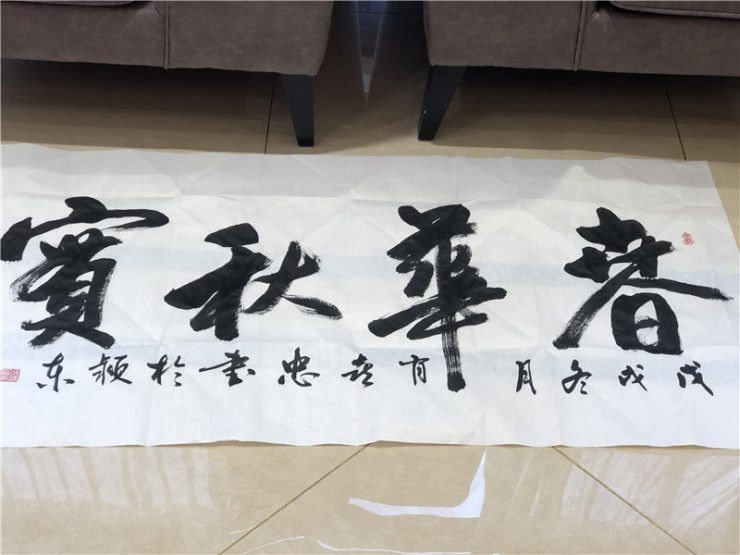 春華秋實
戊戌冬月肖喜忠書於颍东